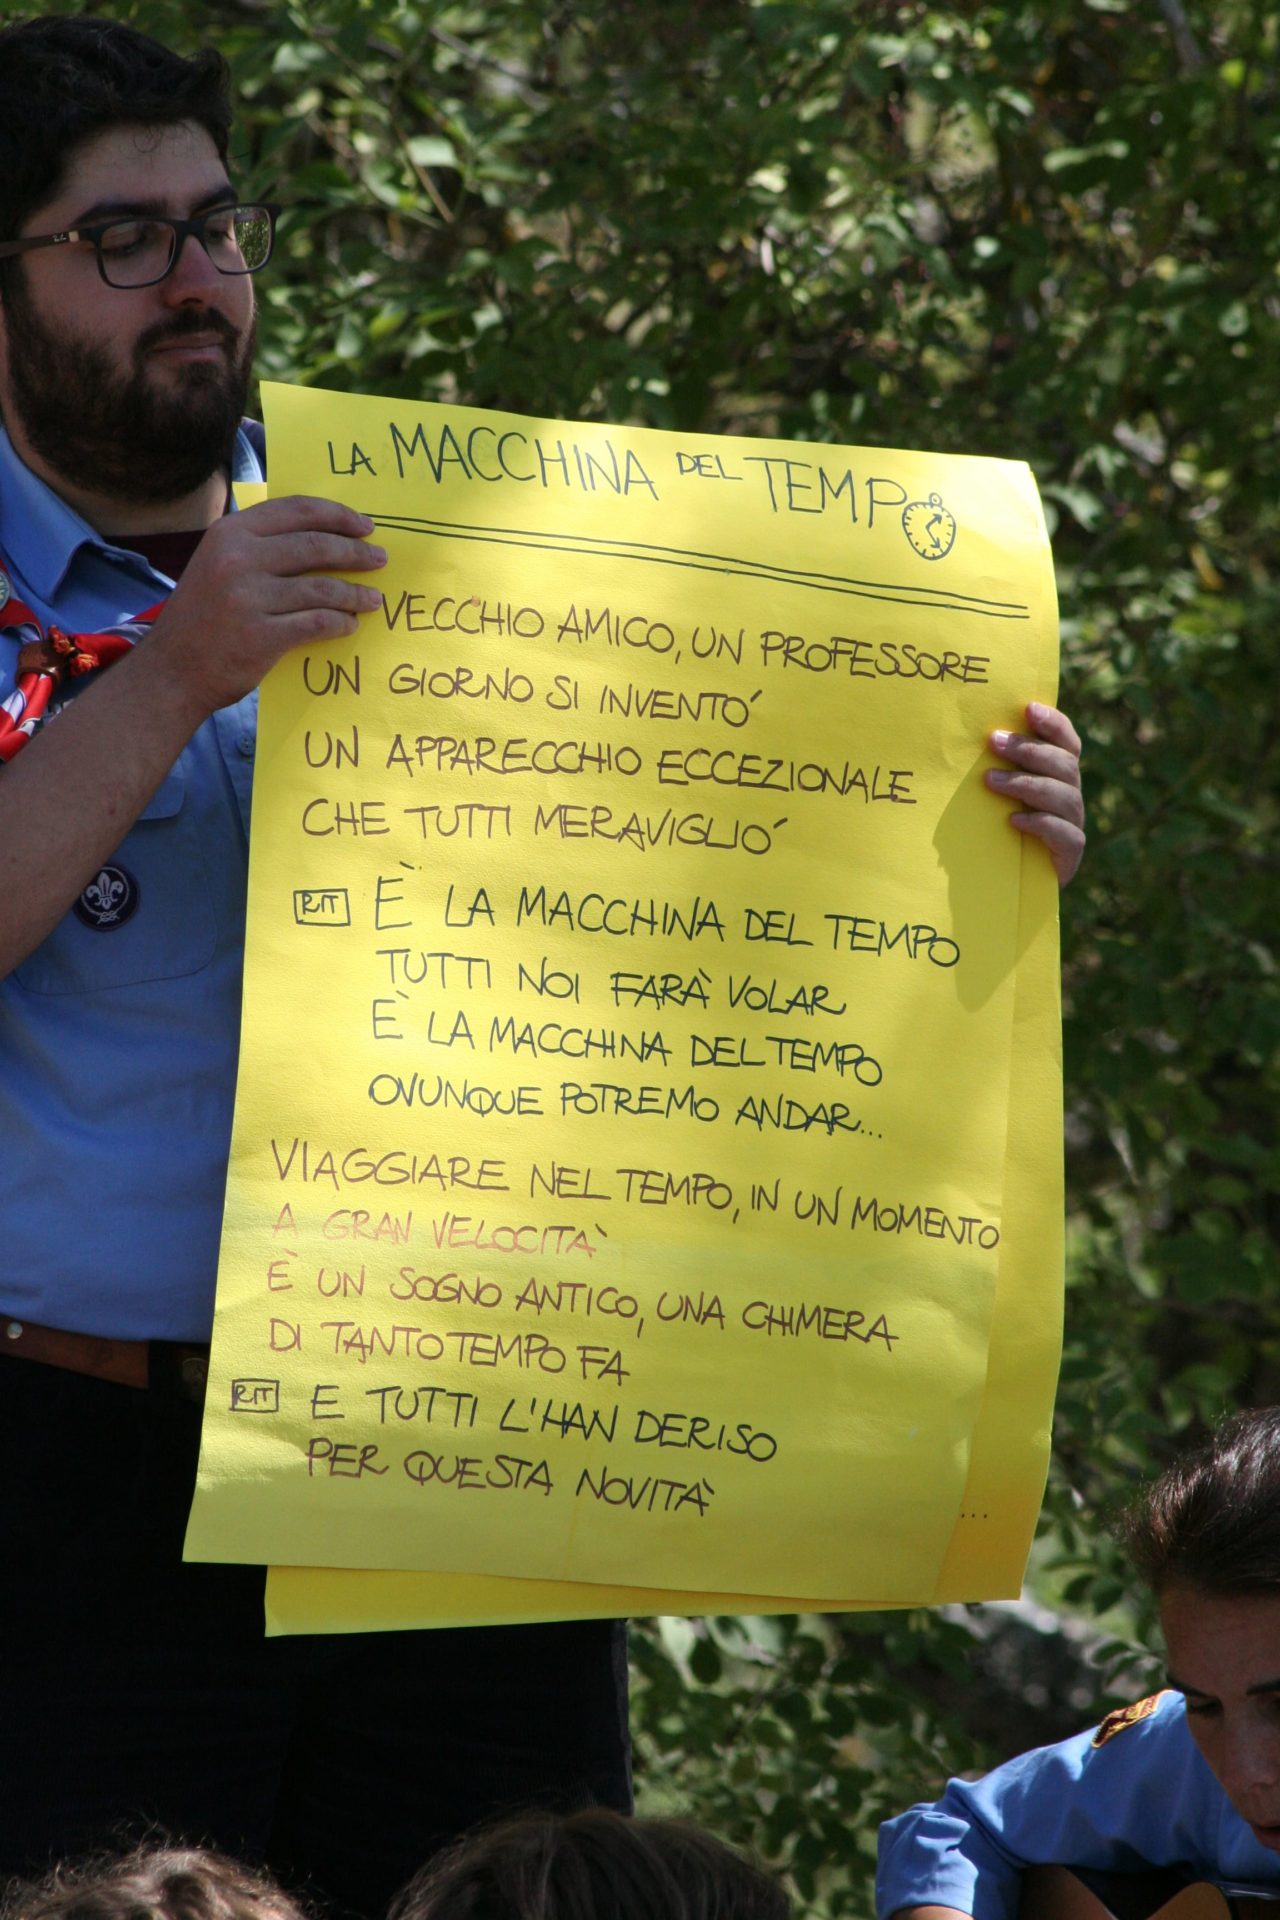 LA MACCHINA DEL TEMPO
VECCHIO AMICO, UN PROFESSORE
UN GIORNO SI INVENTO'
UN APPARECCHIO ECCEZIONALE
CHE TUTTI MERAVIGLIO'
RIT È LA MACCHINA DEL TEMPO
TUTTI NOI FARÀ VOLAR
È LA MACCHINA DEL TEMPO
OVUNQUE POTREMO ANDAR...
VIAGGIARE NEL TEMPO, IN UN MOMENTO
A GRAN VELOCITÀ
È UN SOGNO ANTICO, UNA CHIMERA
DI TANTO TEMPO FA
RIT E TUTTI L'HAN DERISO
PER QUESTA NOVITÀ
...
Ray-Ban